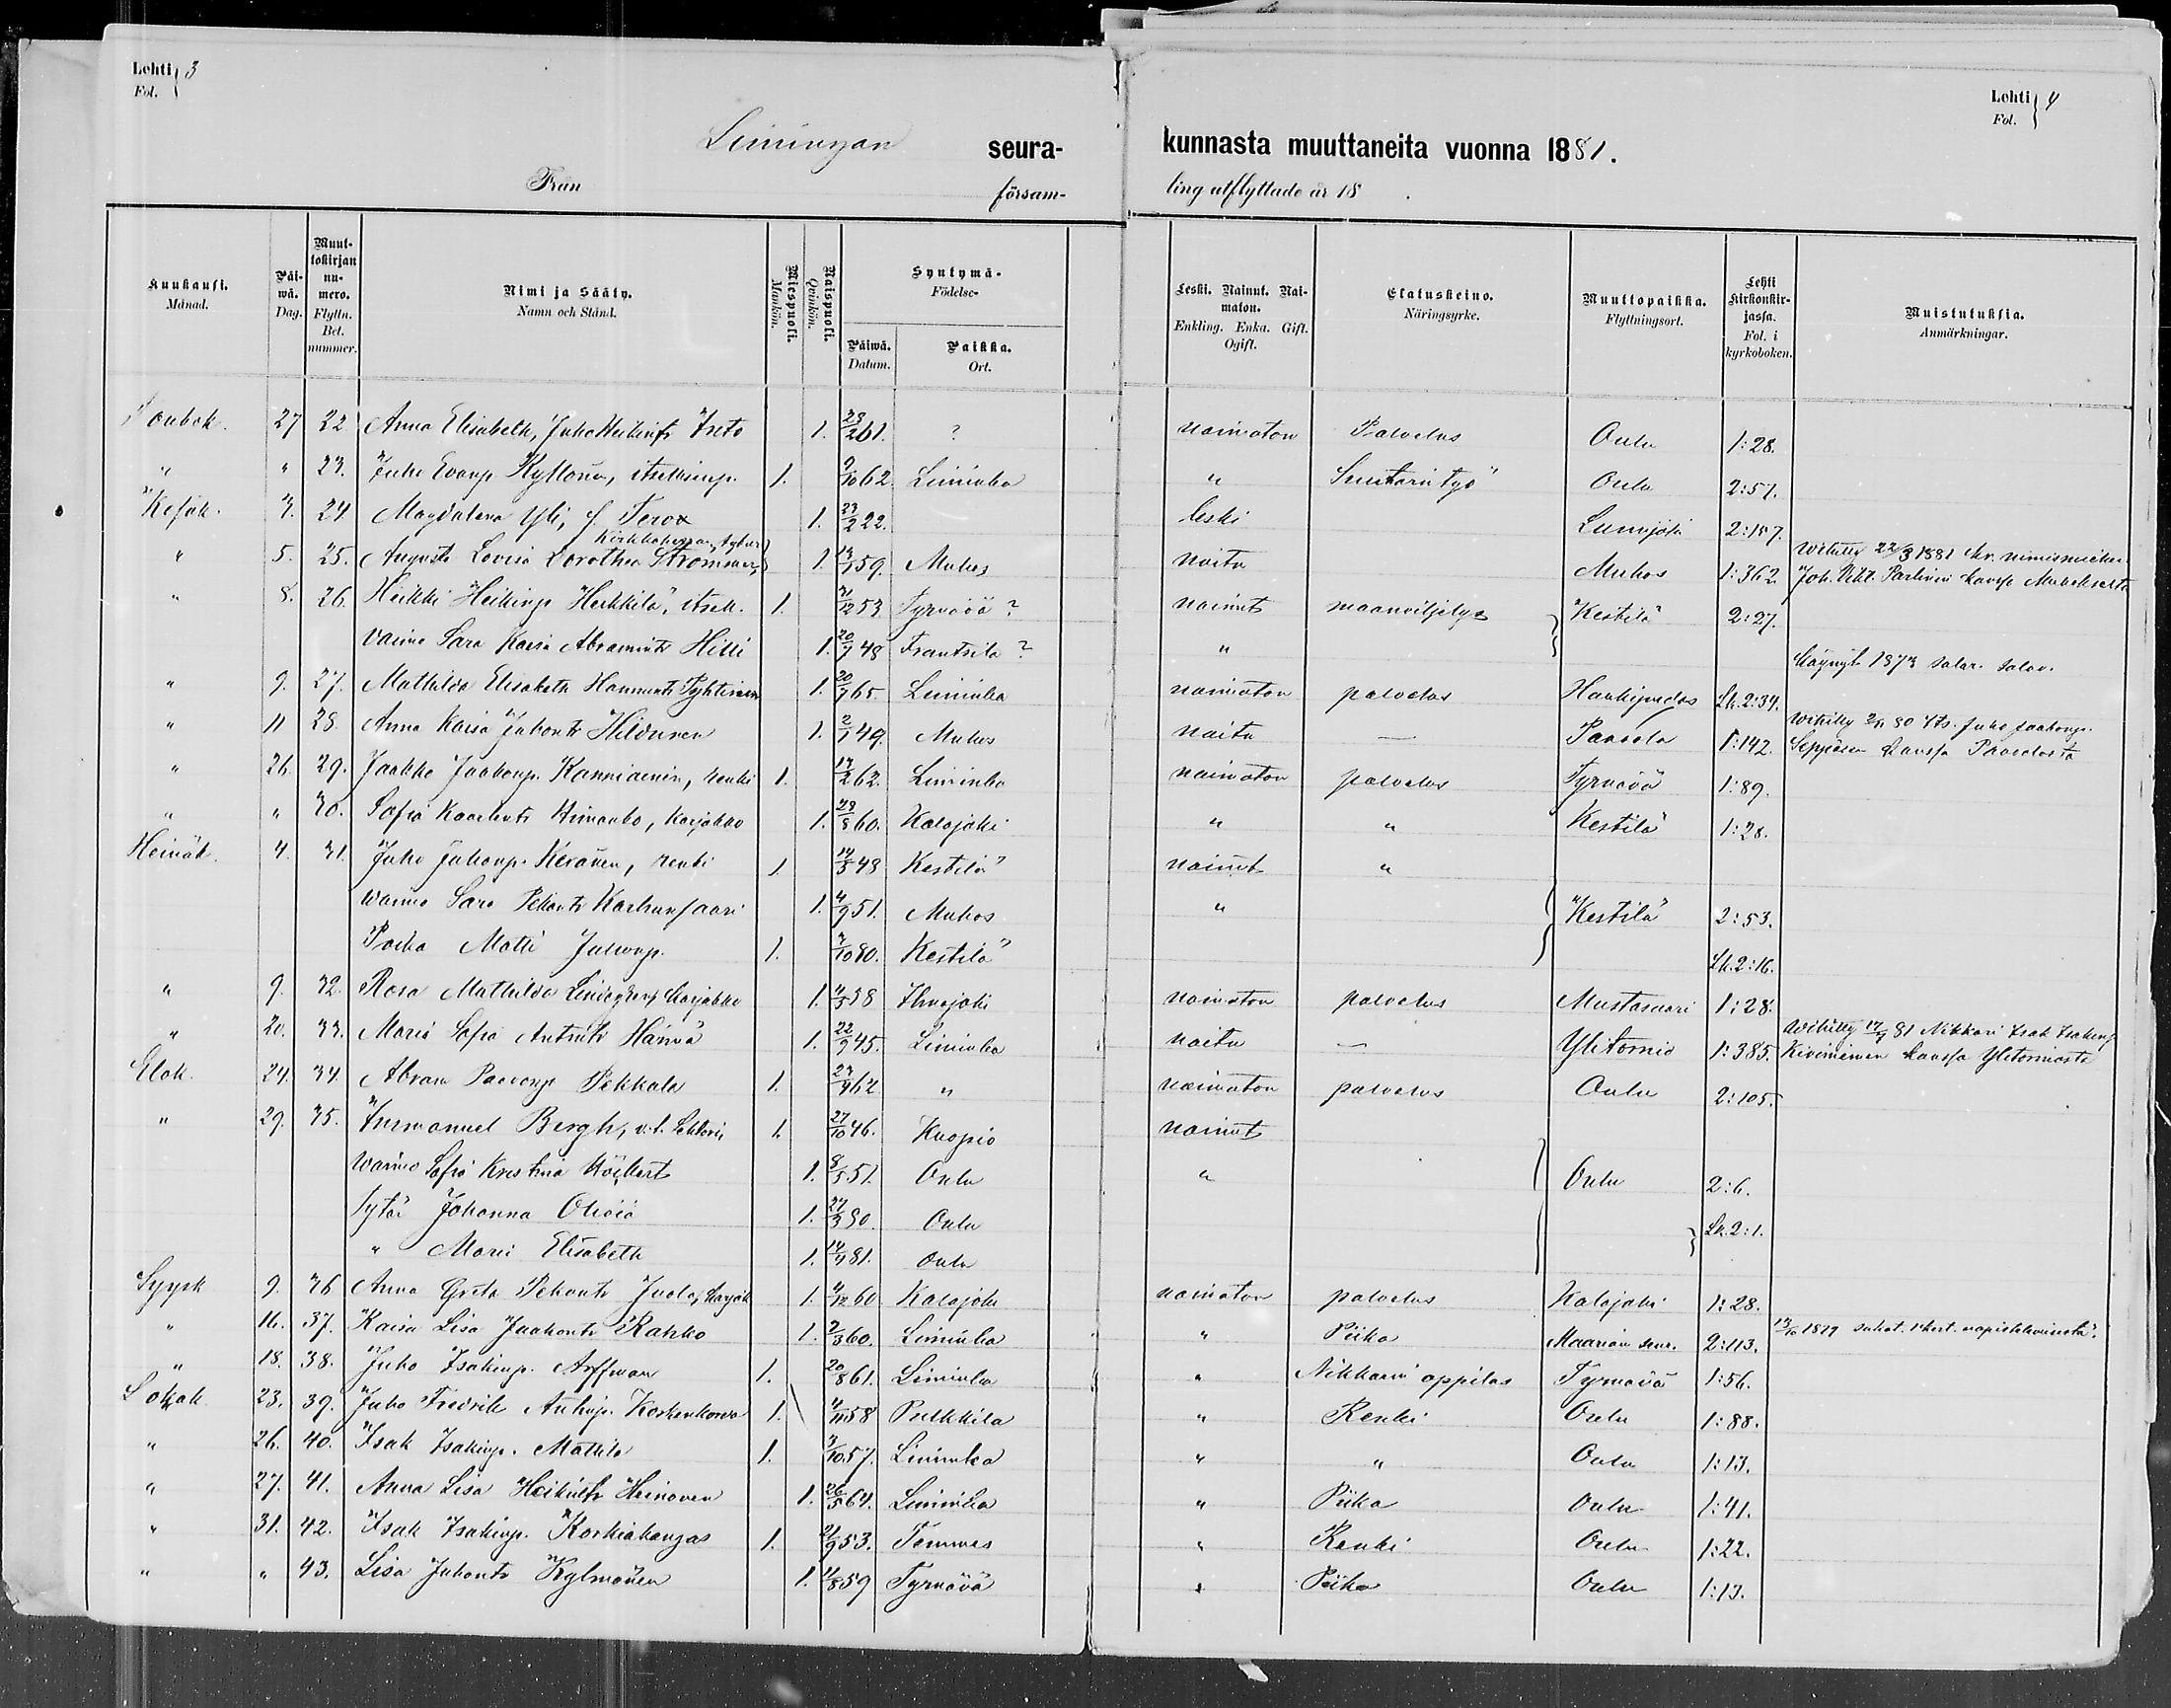 Lehti 3
Fol.
Lehti 4
Fol.
Limingan seura- kunnasta muuttaneita vuonna 1881.
Från försam- ling utflyttade år 18 .
Kuukausi. Månad.
Päiwä. Dag.
Muuttokirjan numero. Flyttn. Bet. nummer.
Nimi ja Sääty. Namn och Stånd.
Miespuoli. Mankön.
Naispuoli. Qvinkön.
Syntymä- Födelse-
Päiwä. Datum.
Paikka. Ort.
Leski. Nainut. Naimaton. Enkling. Enka. Gift. Ogift.
Elatuskeino. Näringsyrke.
Muuttopaikka. Flyttningsort.
Lehti kirkonkirjassa. Fol. i kyrkoboken.
Muistutuksia. Anmärkningar.
Toukok. 27 22 Anna Elisabeth, Juho Heikint. 1. 23/2 61. ? naimaton Palvelus Oulu 1:28.
" " 23. Juho Evanp. Kyllönen, itsellisenp. 1. 9/10 62. Liminka " Suutarin työ Oulu 2:57.
Kesäk. 3. 24 Magdalena Yli, s. Terox 1. 23/2 22. leski Lumijoki 2:157.
" 5. 25. Augusta Lovisa Dorothea Strömman, 1. 59. Muhos naitu Muhos 1:362. Wihitty 22/3 1881 Joh. Vikt. Parkinin kanssa Muhokselta
" 8. 26. Heikki Heikinp. Heikkilä, itsell. 1. 12 53 Tyrnävä ? nainut maanviljelys Kestilä 2:27.
Vaimo Sara Kaisa Abramint. Hilli 1. 20/7 48 Frantsila ? "
" 9. 27. Mathilda Elisabeth Hannunt. Pyhtinen 1. 20/7 65. Liminka naimaton palvelus Haukipudas Lk. 2:34. 1873 salav.
" 11 28. Anna Kaisa Juhont. Hildunen 1. 2/1 49. Muhos naitu — Paavola 1:142. Wihitty 80 Juho Jaakonp. Seppäsen kanssa Paavolasta
" 26. 29. Jaakko Jaakonp. Kanniainen, renki 1. 2 62. Liminka naimaton palvelus Tyrnävä 1:89.
" " 30. Sofia Kaarlent. Himanka, karjakko 1. 8 60. Kalajoki " " Kestilä 1:28.
Heinäk. 4. 31. Juho Juhonp. Keränen, renki 1 14/3 48 Kestilä nainut "
waimo Sara Pekant. Karhunsaari 1. 4/9 51. Muhos " Kestilä 2:53.
Poika Matti Juhonp. 1. 10 80. Kestilä Lk. 2:16.
" 9. 32. Rosa Mathilda Lindegren, karjakko 1. 4/3 58 Ilmajoki naimaton palvelus Mustasaari 1:28.
" 20. 33. Maria Sofia Antint. Hannä 1. 22/9 45. Liminka naitu — Ylitornio 1:385. Wihitty 17/7 81 Nikkari Isak Isakinp. Kiviniemen kanssa Ylitorniosta
Elok. 24. 34. Abram Paavonp. Pekkala 1. 62 " naimaton palvelus Oulu 2:105.
" 29. 35. Immanuel Bergh, v.t. Lehtori, 1. 27/10 46. Kuopio nainut
waimo Sofia Kristina 1. 8/5 51. Oulu " Oulu 2:6.
tytär Johanna Olivia 1. 27/3 80. Oulu Lk. 2:1.
" Maria Elisabeth 1. 81. Oulu
Syysk 9. 36 Anna Greta Pekant. Juola, karjak. 1. 4/12 60 Kalajoki naimaton palvelus Kalajoki 1:28.
" 16. 37. Kaisa Lisa Jaakont. Rahko 1. 2/3 60. Liminka " Piika Maarian seur. 2:113. 13/10 1877
" 18. 38. Juho Isakinp. Arffman 1. 20/8 61. Liminka " Nikkarin oppilas Tyrnävä 1:56.
Lokak 23. 39. Juho Fredrik Antinp. Koskenkorva 1. 4/11 58 Pulkkila " Renki Oulu 1:88.
" 26. 40. Isak Isakinp. Mattila 1. 10 57. Liminka " " Oulu 1:13.
" 27. 41. Anna Lisa Heikint. Heinonen 1. 26/5 64. Liminka " Piika Oulu 1:41.
" 31. 42. Isak Isakinp. Korkiakangas 1. 21/9 53. Temmes " Renki Oulu 1:22.
" " 43. Lisa Juhont. Kylmänen 1. 8 59 Tyrnävä " Piika Oulu 1:13.